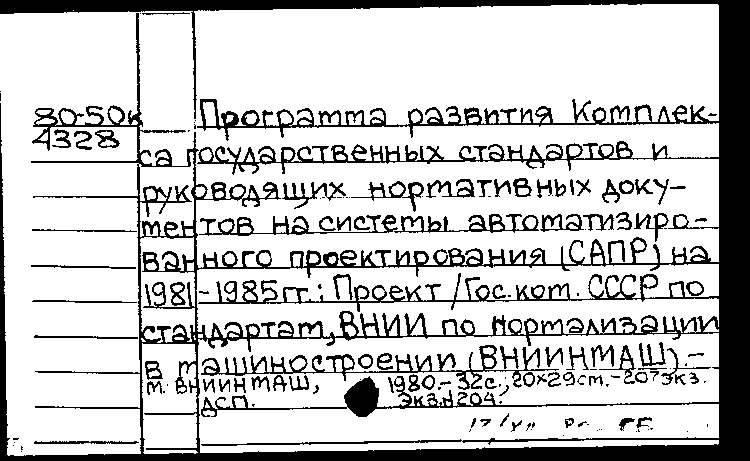 80-50к Программа развития Комплек-
4328
са государственных стандартов и
руководящих нормативных доку-
ментов на системы автоматизиро-
ванного проектирования (САПР) на
1981-1985гг.: Проект /Гос.ком. СССР по
стандартам, ВНИИ по нормализации
в машиностроении (ВНИИНМАШ).-
М. ВНИИНМАШ, 1980.-32с.; 20×29см.-207экз.
ДСП. Экз.N204.